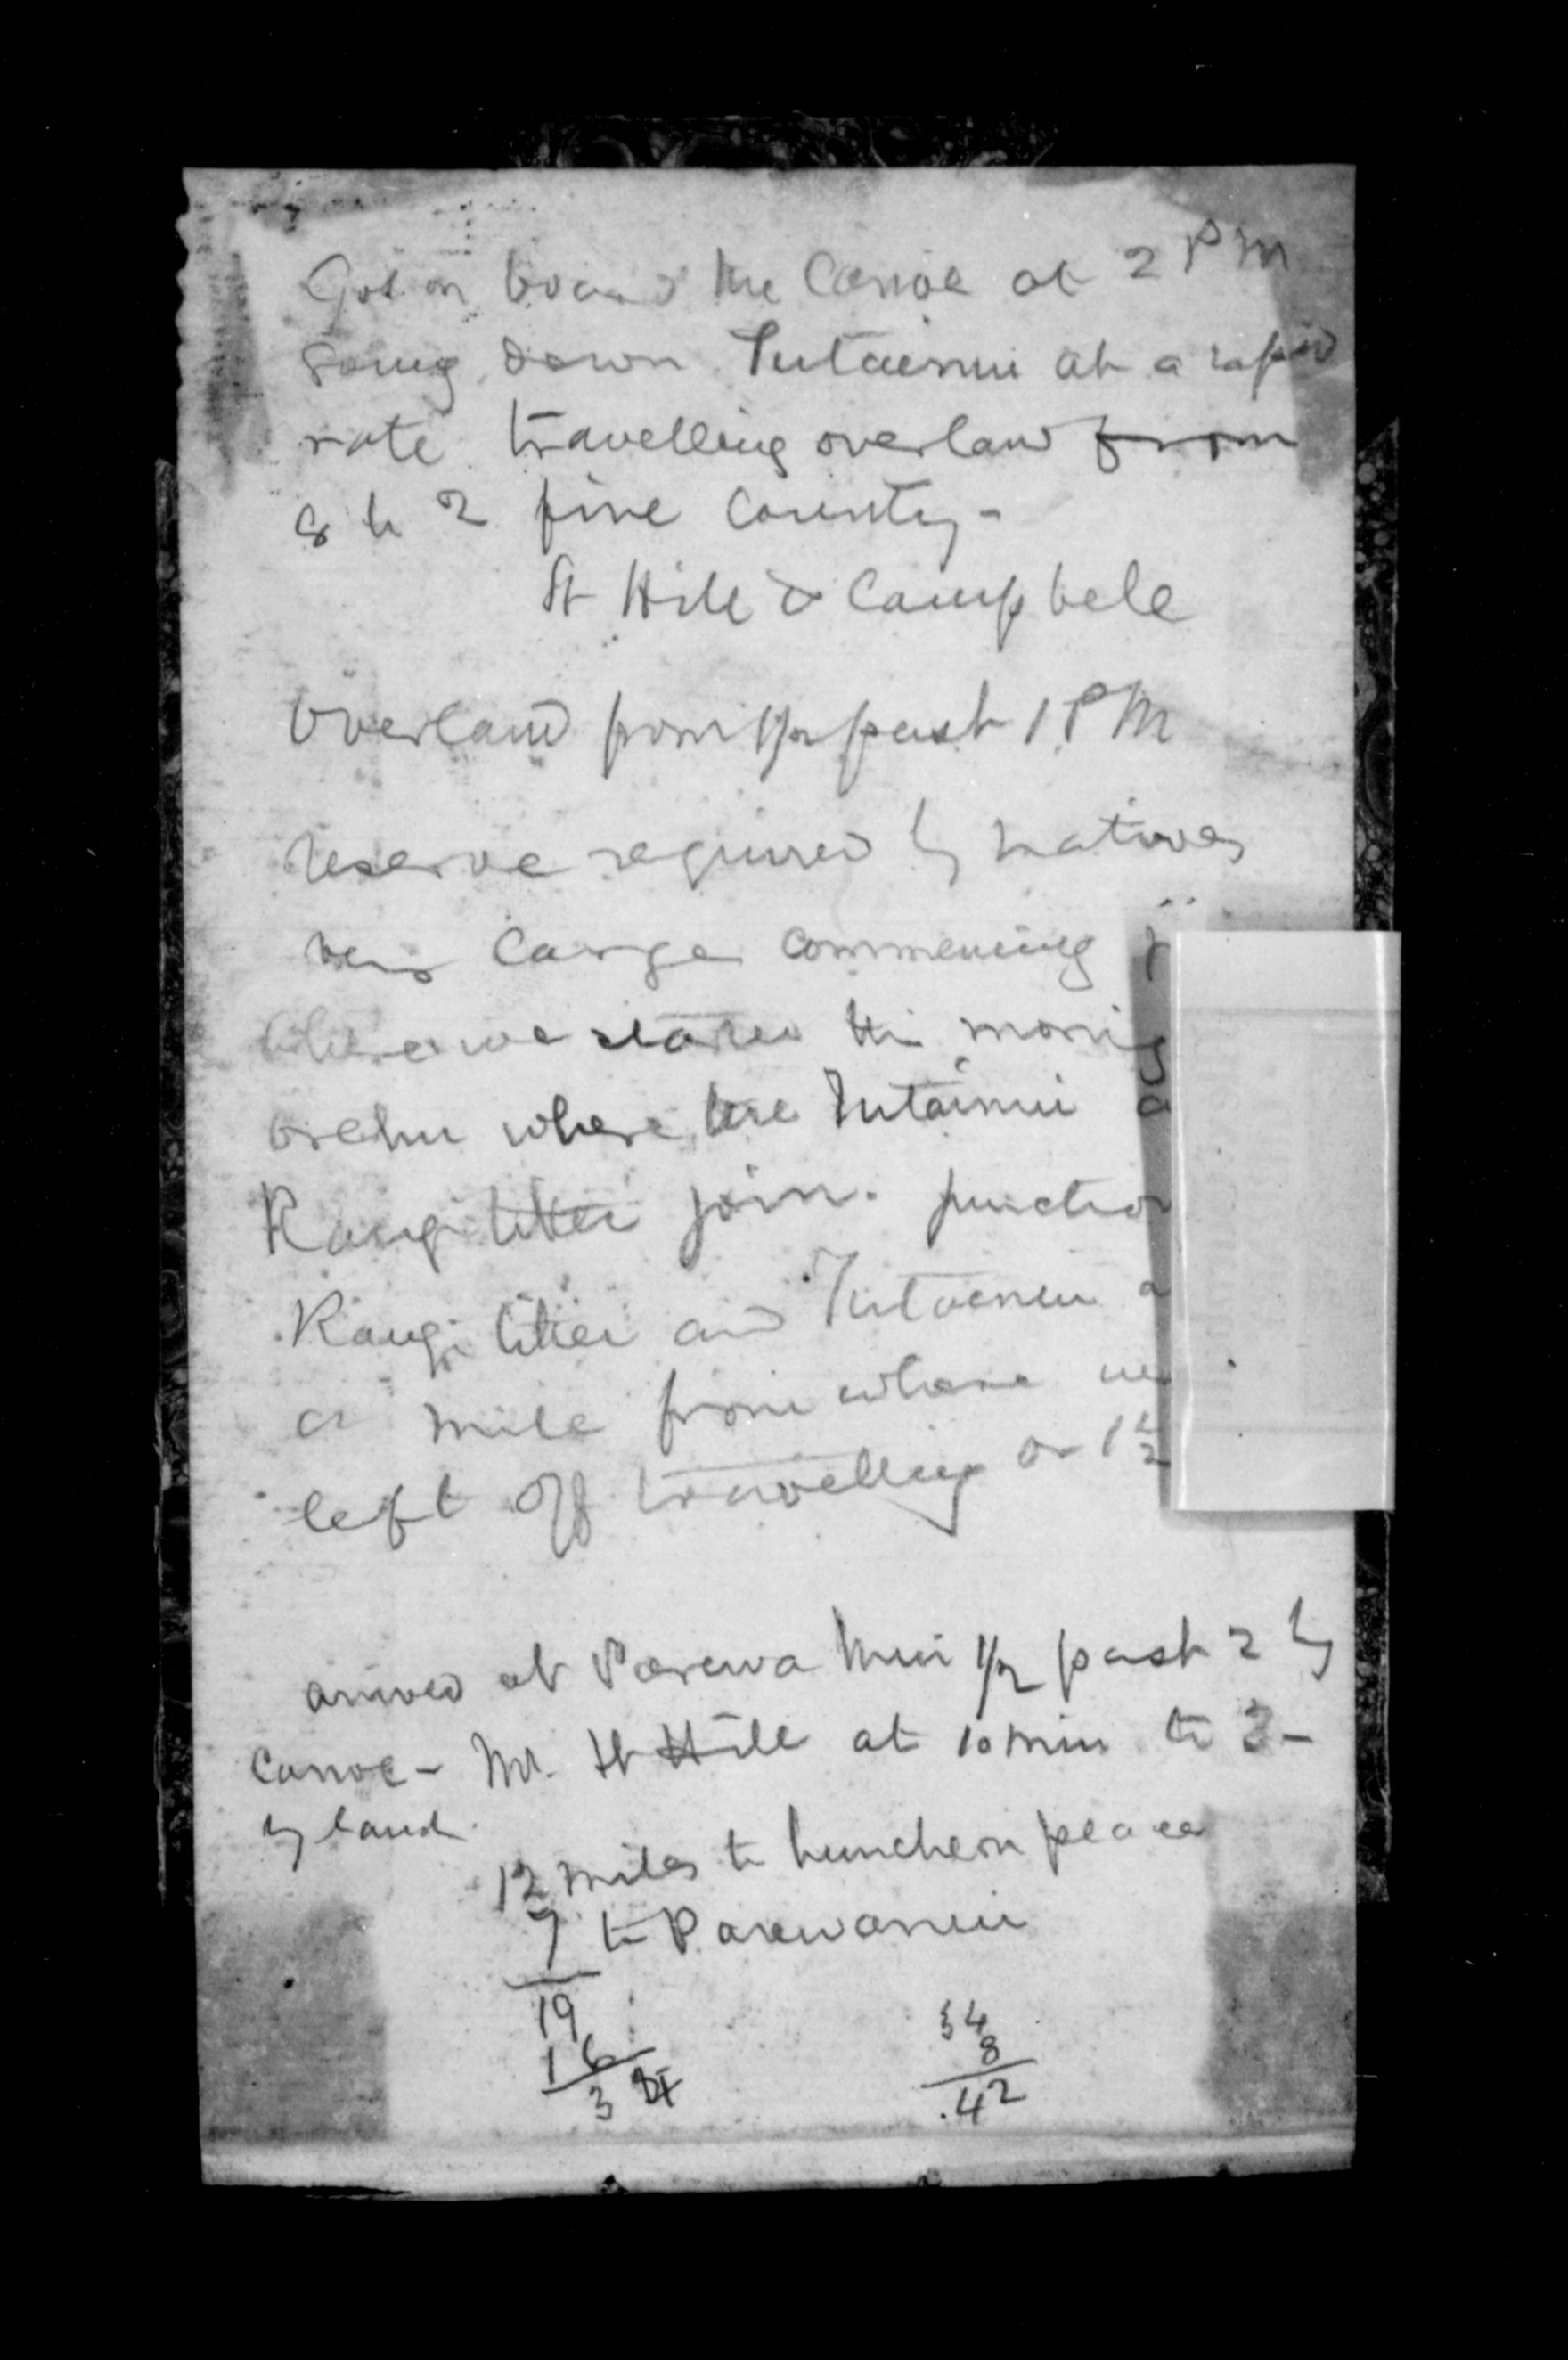 Got on board the Canoe at 2 PM
going down Tutaenui at a rapid
rate travelling overland from
8 to 2 fine country -
St Hill & Campbell
overland from 1/2 past 1 PM
reserve required by natives
very large commencing
where we started this morning
where the Tutainui a
Rangitikei join. junction
Rangitikei and Tutaenui a
a mile from where we
left off travelling or 1 1/2
arrived at Parewa Nui 1/2 past 2 by
Canoe - Mr. St Hill at 10 min to 3 -
by land
12 miles to luncheon place
7 to Parewanui
19
16
3
34
8
42